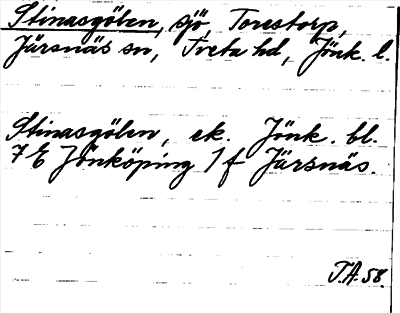 Stinasgölen, sjö, Torestorp,
Järsnäs sn, Tveta hd, Jönk. l.
Stinasgölen, ek. Jönk. bl.
7 E Jönköping 1 f Järsnäs.
T.A. 58.